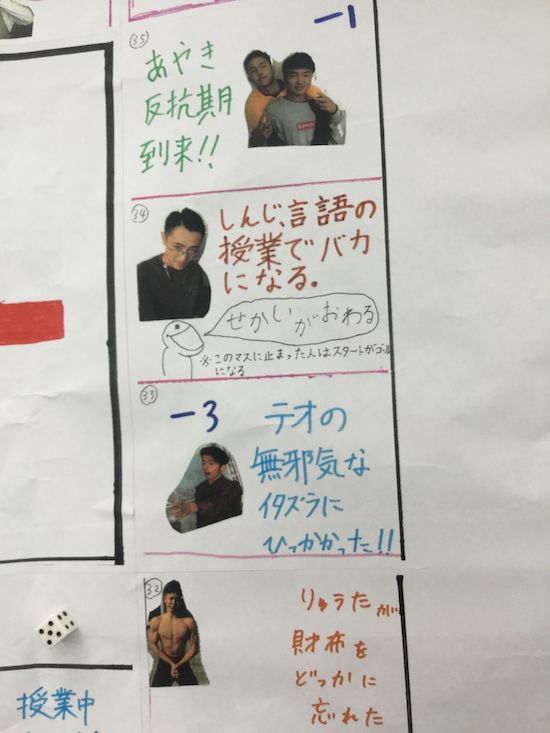 ㉟
−1
あやき
反抗期
到来!!
Supreme
㉞
しんじ、言語の
授業でバカ
になる。
せかいがおわる
※このマスに止まった人はスタートがゴール
になる
㉝
−3
テオの
無邪気な
イタズラに
ひっかかった!!
㉜
りゅうたが
財布を
どっかに
忘れた
授業中